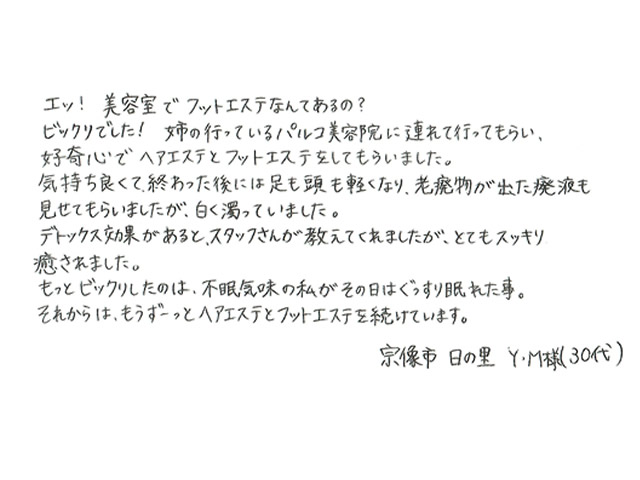 エッ! 美容室でフットエステなんてあるの?
ビックリでした! 姉の行っているパルコ美容院に連れて行ってもらい、
好奇心でヘアエステとフットエステをしてもらいました。
気持ち良くて、終わった後には足も頭も軽くなり、老廃物が出た廃液も
見せてもらいましたが、白く濁っていました。
デトックス効果があると、スタッフさんが教えてくれましたが、とてもスッキリ
癒されました。
もっとビックリしたのは、不眠気味の私がその日はぐっすり眠れた事。
それからは、もうずーっとヘアエステとフットエステを続けています。
宗像市 日の里 Y・M様(30代)